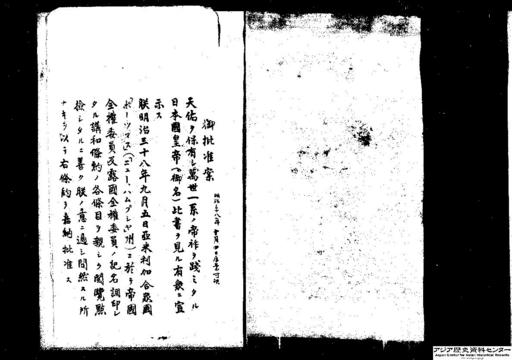 御批准案
天佑ヲ保有シ萬世一系ノ帝祚ヲ踐ミタル
日本國皇帝(御名)此書ヲ見ル有衆ニ宣
示ス
朕明治三十八年九月五日亞米利加合衆國
「ポーツマス」(ニュー、ハムプシャ州)ニ於テ帝國
全權委員及露國全權委員ノ記名調印シ
タル講和條約ノ各條目ヲ親シク閲覽點
檢シタルニ善ク朕ノ意ニ適シ間然スル所
ナキヲ以テ右條約ヲ嘉納批准ス
アジア歴史資料センター
Japan Center for Asian Historical Records